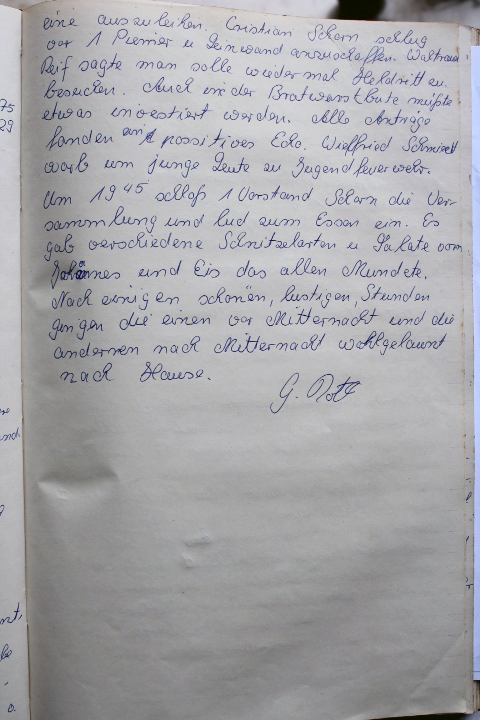 75
29
eine auszuleihen. Cristian Scharn schlug
vor 1 Piemer u Leinwand anzuschaffen. Waltraud
Reif sagte man solle wieder mal Heldritt zu
besuchen. Auch in der Bratwurstbute müßte
etwas investiert werden. Alle Anträge
fanden ein possitives Echo. Wielfried Schmidt
warb um junge Leute zu Jugendfeuerwehr.
Um 19 45 schloß 1 Vorstand Scharn die Ver-
sammlung und lud zum Essen ein. Es
gab verschiedene Schnitzelarten u Salate vom
Johannes und Eis das allen Mundete.
Nach einigen schönen, lustigen, Stunden
gingen die einen vor Mitternacht und die
andernen nach Mitternacht wohlgelaunt
nach Hause.
G.